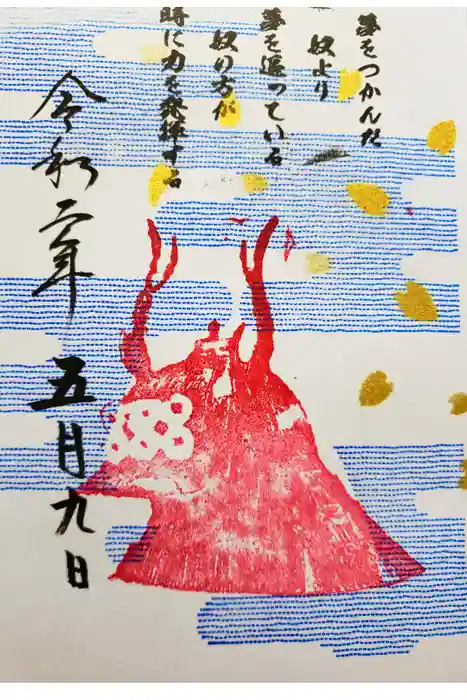 夢をつかんだ
奴より
夢を追っている
奴の方が
時に力を発揮する
令和二年 五月九日